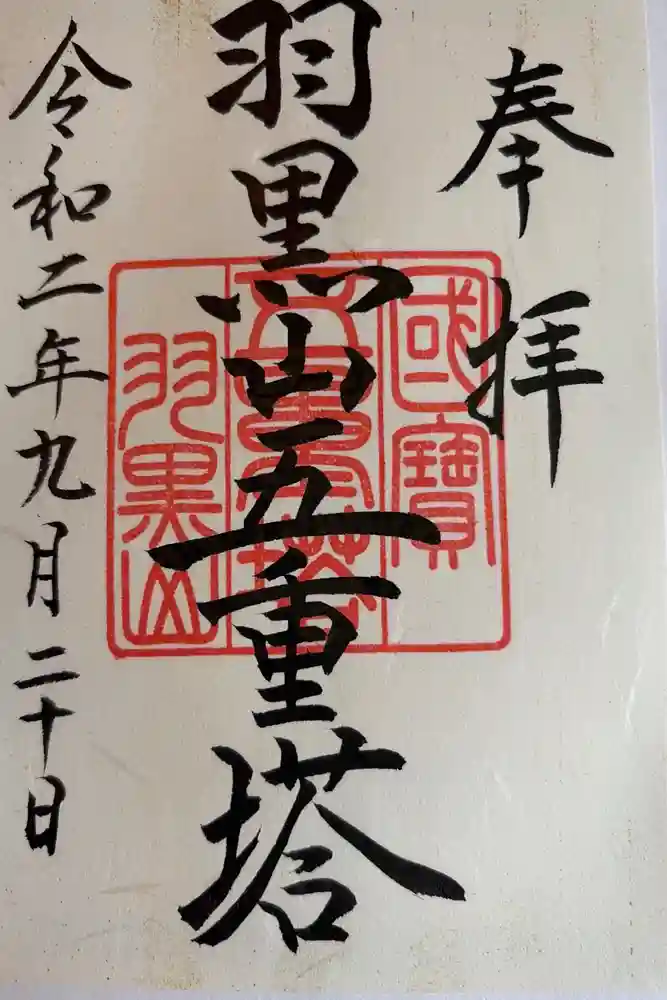 奉拝
羽黒山五重塔
令和二年九月二十日
國寶
五重塔
羽黒山